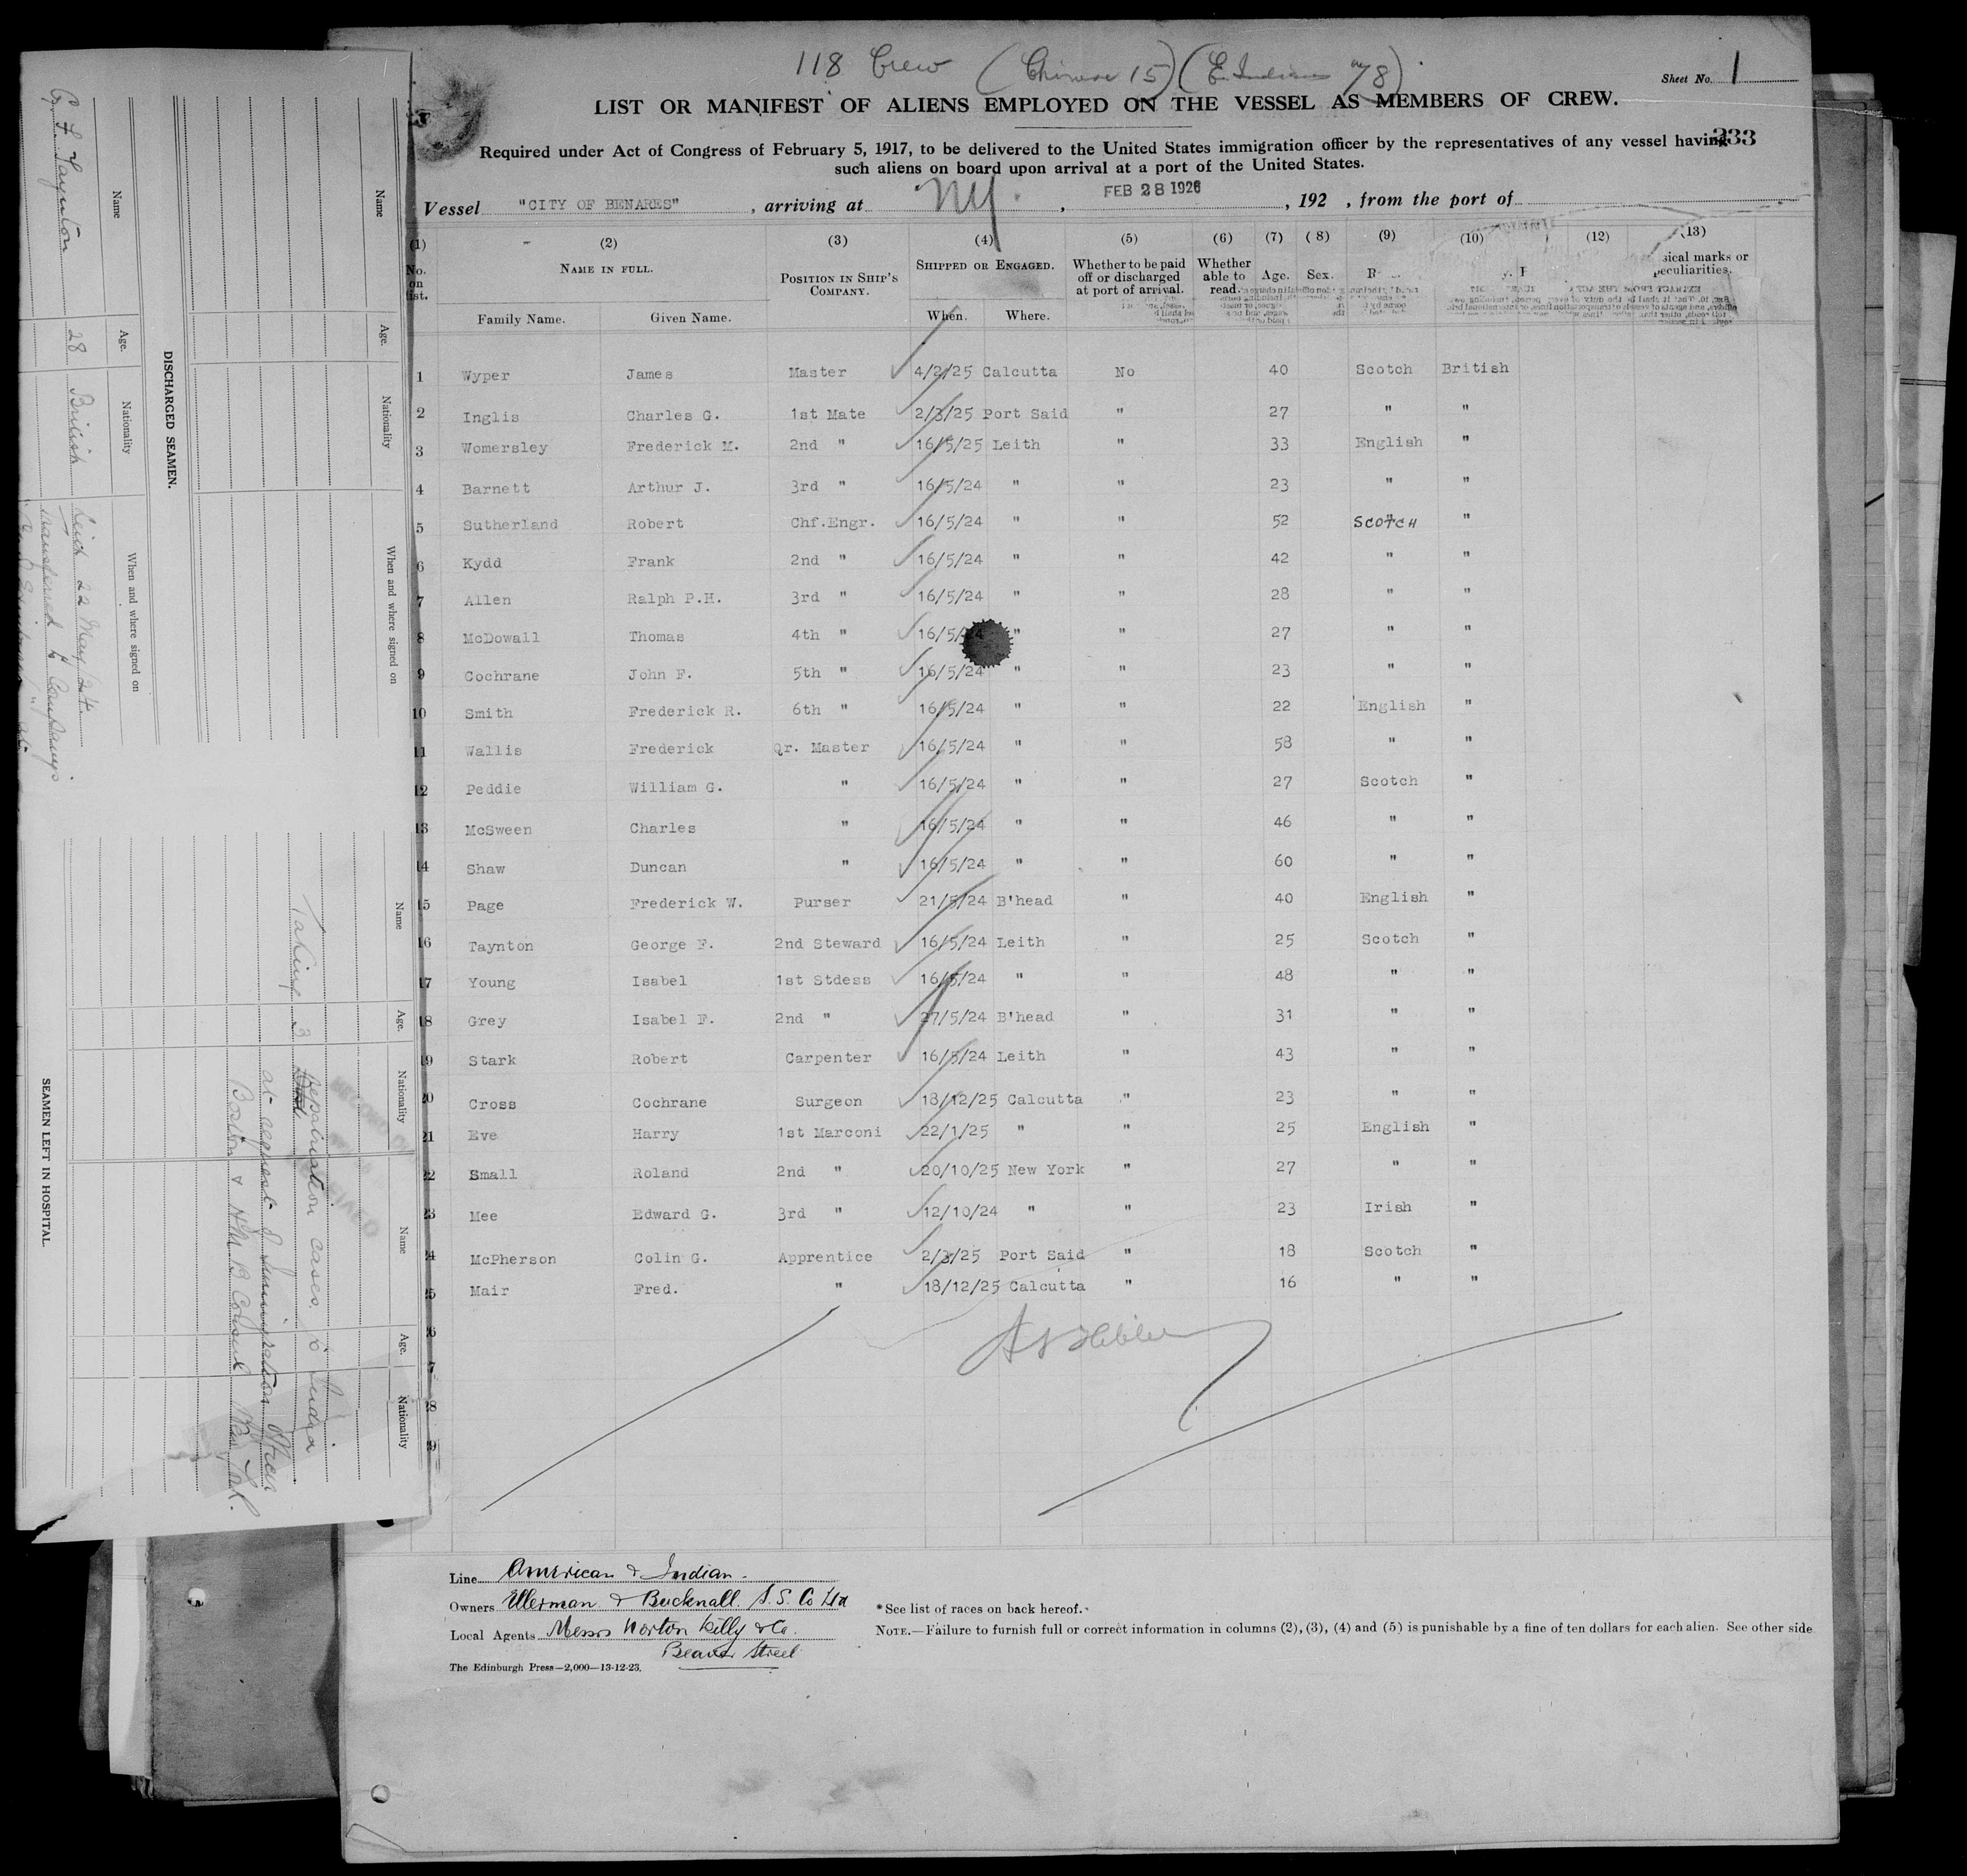 118 Crew (Chinese 15) (E. Indians 78)
Sheet No. 1
LIST OR MANIFEST OF ALIENS EMPLOYED ON THE VESSEL AS MEMBERS OF CREW.
333
Required under Act of Congress of February 5, 1917, to be delivered to the United States immigration officer by the representatives of any vessel having
such aliens on board upon arrival at a port of the United States.
Vessel "CITY OF BENARES", arriving at NY, FEB 28 1926, 192 , from the port of
(1) (2) (3) (4) (5) (6) (7) (8) (9) (10) (12) (13)
No. on list. NAME IN FULL. POSITION IN SHIP'S COMPANY. SHIPPED OR ENGAGED. Whether to be paid off or discharged at port of arrival. Whether able to read. Age. Sex. sical marks or peculiarities.
Family Name. Given Name. When. Where.
1 Wyper James Master 4/2/25 Calcutta No 40 Scotch British
2 Inglis Charles G. 1st Mate 2/3/25 Port Said " 27 " "
3 Womersley Frederick M. 2nd " 16/5/25 Leith " 33 English "
4 Barnett Arthur J. 3rd " 16/5/24 " " 23 " "
5 Sutherland Robert Chf.Engr. 16/5/24 " " 52 SCOTCH "
6 Kydd Frank 2nd " 16/5/24 " " 42 " "
7 Allen Ralph P.H. 3rd " 16/5/24 " " 28 " "
8 McDowall Thomas 4th " 16/5/24 " " 27 " "
9 Cochrane John F. 5th " 16/5/24 " " 23 " "
10 Smith Frederick R. 6th " 16/5/24 " " 22 English "
11 Wallis Frederick Qr. Master 16/5/24 " " 58 " "
12 Peddie William G. " 16/5/24 " " 27 Scotch "
13 McSween Charles " 16/5/24 " " 46 " "
14 Shaw Duncan " 16/5/24 " " 60 " "
15 Page Frederick W. Purser 21/5/24 B'head " 40 English "
16 Taynton George F. 2nd Steward 16/5/24 Leith " 25 Scotch "
17 Young Isabel 1st Stdess 16/5/24 " " 48 " "
18 Grey Isabel F. 2nd " 27/5/24 B'head " 31 " "
19 Stark Robert Carpenter 16/5/24 Leith " 43 " "
20 Cross Cochrane Surgeon 18/12/25 Calcutta " 23 " "
21 Eve Harry 1st Marconi 22/1/25 " " 25 English "
22 Small Roland 2nd " 20/10/25 New York " 27 " "
23 Mee Edward G. 3rd " 12/10/24 " " 23 Irish "
24 McPherson Colin G. Apprentice 2/3/25 Port Said " 18 Scotch "
25 Mair Fred. " 18/12/25 Calcutta " 16 " "
6
7
28
9
Line American & Indian.
Owners Ellerman & Bucknall S.S. Co Ltd
Local Agents Messrs Norton Lilly & Co.
Beaver Street
The Edinburgh Press—2,000—13-12-23.
*See list of races on back hereof.
NOTE.—Failure to furnish full or correct information in columns (2), (3), (4) and (5) is punishable by a fine of ten dollars for each alien. See other side
DISCHARGED SEAMEN.
Name Age. Nationality When and where signed on
Name Age. Nationality When and where signed on
G F Taynton 28 British Leith 22 May/24.
transferred to Company's
SEAMEN LEFT IN HOSPITAL.
Name Age. Nationality Name Age. Nationality
Taking 3 Repatriation cases to India
at request of Immigration Officer
Boston & H.B.M Consul New York.